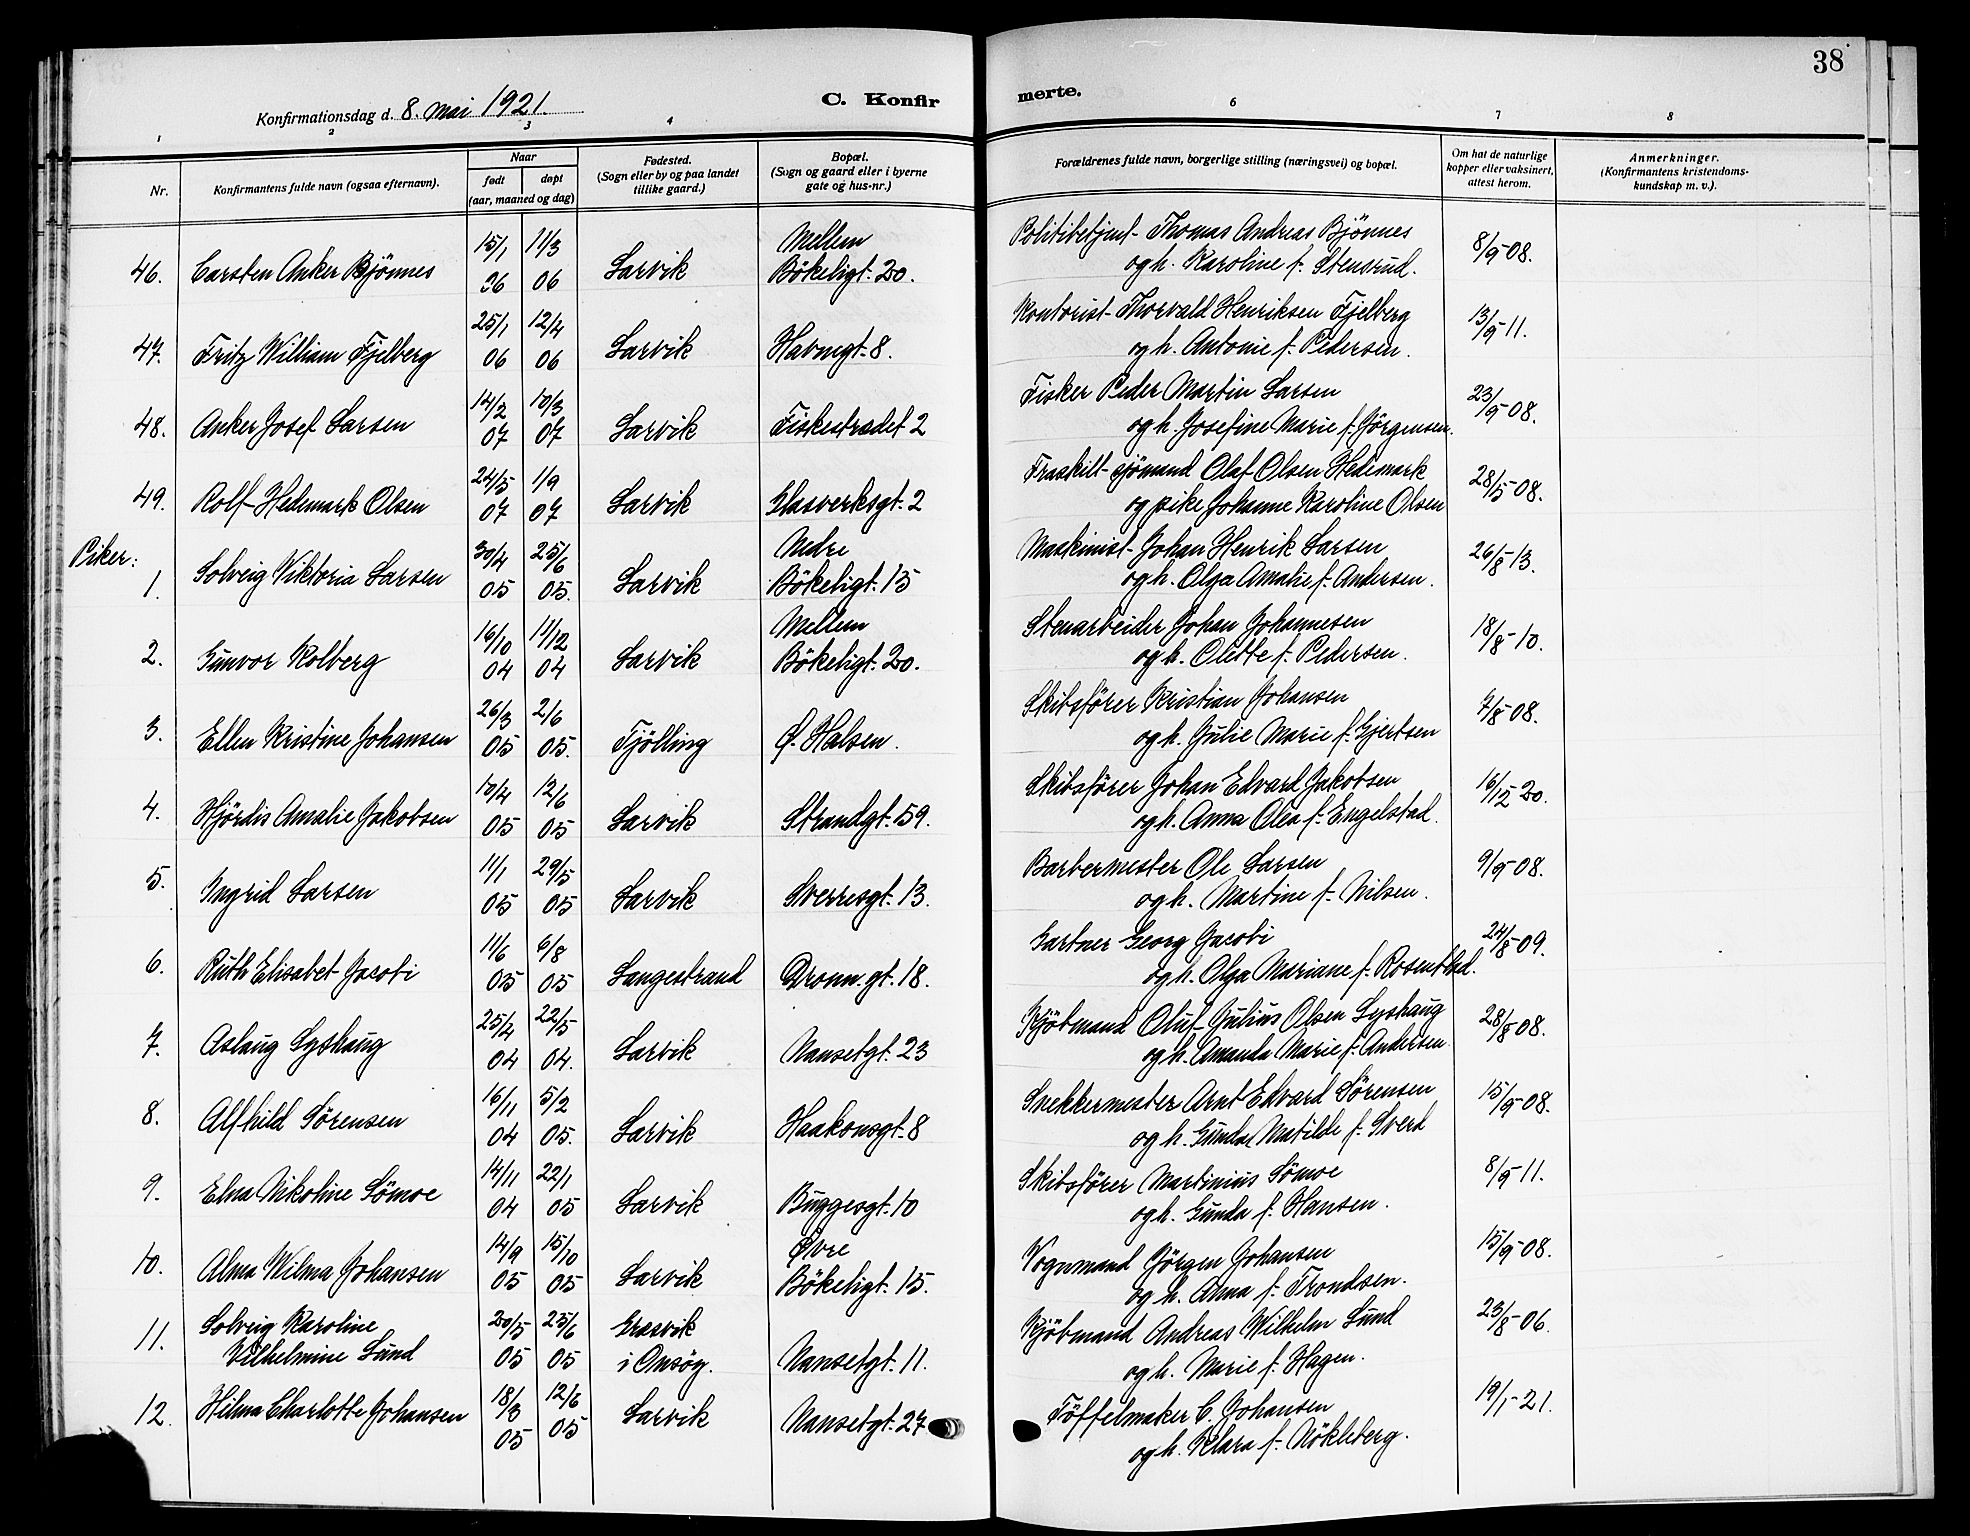 38
Konfirmationsdag d. 8. mai 1921.
C. Konfir
merte.
1 2 3 4 6 7 8
Nr.
Konfirmantens fulde navn (ogsaa efternavn).
Naar
født døpt
(aar, maaned og dag)
Fødested.
(Sogn eller by og paa landet
tillike gaard.)
Bopæl.
(Sogn og gaard eller i byerne
gate og hus-nr.)
Forældrenes fulde navn, borgerlige stilling (næringsvei) og bopæl.
Om hat de naturlige
kopper eller vaksinert,
attest herom.
Anmerkninger.
(Konfirmantens kristendoms-
kundskap m. v.).
15/1 11/3 Mellem Politibetjent Thomas Andreas Bjönnes 8/9-08.
46. Carsten Anker Bjönnes 06 06 Larvik Bökeligt. 20. og h. Karoline f. Stensrud.
25/1 12/4 Kontorist Thorvald Henriksen Fjelberg 13/9-11.
47. Fritz William Fjelberg 06 06 Larvik Havnegt. 8. og h. Antonie f. Pedersen.
14/2 10/3 Fisker Peder Martin Larsen 23/9-08.
48. Anker Josef Larsen 07 07 Larvik Fiskestrædet 2 og h. Josefine Marie f. Jörgensen.
24/5 1/9 Fraskilt sjömand Olaf Olsen Hedemark 28/5-08.
49. Rolf Hedemark Olsen 07 07 Larvik Glasverksgt. 2 og pike Johanne Karoline Olsen
Piker:
30/4 25/6 Nedre Maskinist Johan Henrik Larsen 26/8-13.
1. Solveig Viktoria Larsen 05 05. Larvik Bökeligt. 15 og h. Olga Amalie f. Andersen.
16/10 11/12 Mellem Stenarbeider Johan Johannesen 18/8-10.
2. Gunvor Kolberg 04 04 Larvik Bökeligt. 20. og h. Olette f. Pedersen.
26/3 2/6 Skibsförer Kristian Johansen 7/8-08.
3. Ellen Kristine Johansen 05 05. Tjölling Ø. Halsen. og h. Julie Marie f. Gjertsen
10/4 12/6 Skibsförer Johan Edvard Jakobsen 16/12-20.
4. Hjördis Amalie Jakobsen 05 05 Larvik Strandgt. 59. og h. Anna Olea f. Engelstad.
11/1 29/5 Barbermester Ole Larsen 9/9-08.
5. Ingrid Larsen 05 05 Larvik Sverresgt. 13. og h. Martine f. Nilsen.
11/6 6/8 Gartner Georg Jacobi 24/8-09.
6. Ruth Elisabet Jacobi 05 05 Langestrand Dronn. gt. 18. og h. Olga Mariane f. Rosenblad.
25/4 22/5 Kjöbmand Oluf Julius Olsen Lyshaug 28/8-08.
7. Aslaug Lyshaug 04 04. Larvik Nansetgt. 23 og h. Amanda Marie f. Andersen.
16/11 5/2 Snekkermester Arnt Edvard Sörensen 15/9-08.
8. Alfhild Sörensen 04 05. Larvik Haakonsgt. 8 og h. Gunda Matilde f. Sverd
14/11 22/1 Skibsförer Martinius Sömoe 8/9-11.
9. Elna Nikoline Sömoe 04 05 Larvik Buggesgt. 10 og h. Gunda f. Hansen.
14/9 15/10 Øvre Vognmand Jörgen Johansen 15/9-08.
10. Alma Wilma Johansen 05 05 Larvik Bökeligt. 15. og h. Anna f. Trondsen.
Solveig Karoline 20/5 25/6 Græsvik Kjöbmand Andreas Wilhelm Lund 23/8-06.
11. Vilhelmine Lund 05 05 i Onsöy. Nansetgt. 11. og h. Marie f. Hagen.
18/3 12/6 Töffelmaker C. Johansen 19/1-21.
12. Hilma Charlotte Johansen 05 05 Larvik Nansetgt. 27 og h. Klara f. Nökleberg.